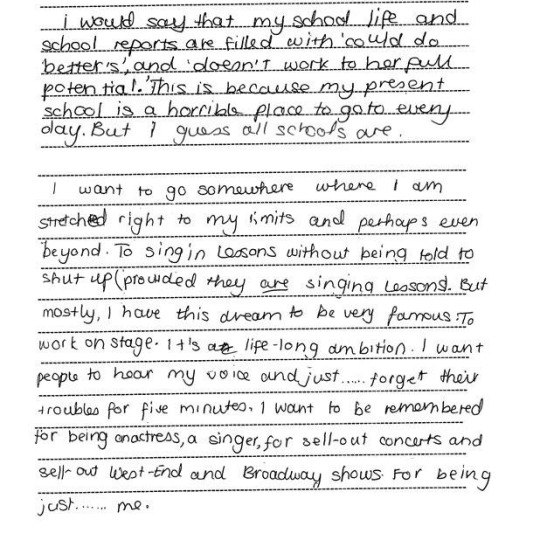 i would say that my school life and
school reports are filled with 'could do
better's', and 'doesn't work to her full
potential.' This is because my present
school is a horrible place to go to every
day. But I guess all schools are.
I want to go somewhere where I am
stretched right to my limits and perhaps even
beyond. To sing in lessons without being told to
shut up (provided they are singing lessons). But
mostly, I have this dream to be very famous. To
work on stage. It's a life-long ambition. I want
people to hear my voice and just...... forget their
troubles for five minutes. I want to be remembered
for being an actress, a singer, for sell-out concerts and
sell-out West-End and Broadway shows. For being
just....... me.